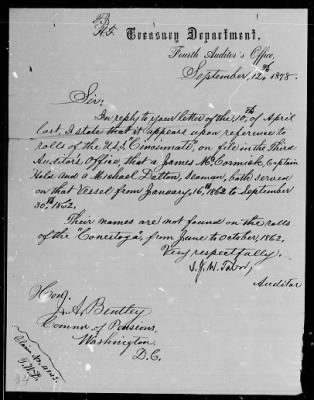 Treasury Department,
Fourth Auditor's Office,
September 12th 1878.
Sir:
In reply to your letter of the 10th of April
last, I state that it appears upon reference to
rolls of the U.S.S. "Cincinnati", on file in the Third
Auditor's Office, that a James McCormick, Captain
Hold and a Michael Dalton, Seaman, both served
on that Vessel from January 16th 1862 to September
30th 1862.
Their names are not found on the rolls
of the "Conestoga", from June to October, 1862.
Very respectfully,
S.J.W. Tabor,
Auditor
Hon.
J.A. Bentley
Comnr. of Pensions,
Washington
D.C.